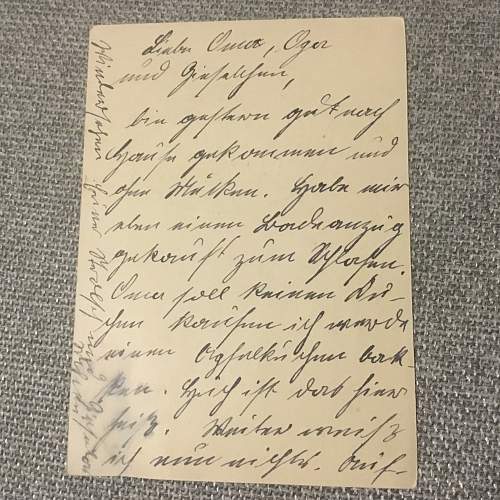 Liebe Oma, Opa
und Gieselchen,
bin gestern gut nach
Hause gekommen und
ohne Mücken. Habe mir
eben einen Badeanzug
gekauft zum Schlafen.
Oma soll keinen Ku-
chen kaufen ich werde
einen Apfelkuchen bak-
ken. Huch ist das hier
heiß. Weiter weiß
ich nun nichts. Auf-
Wiedersehen Heine